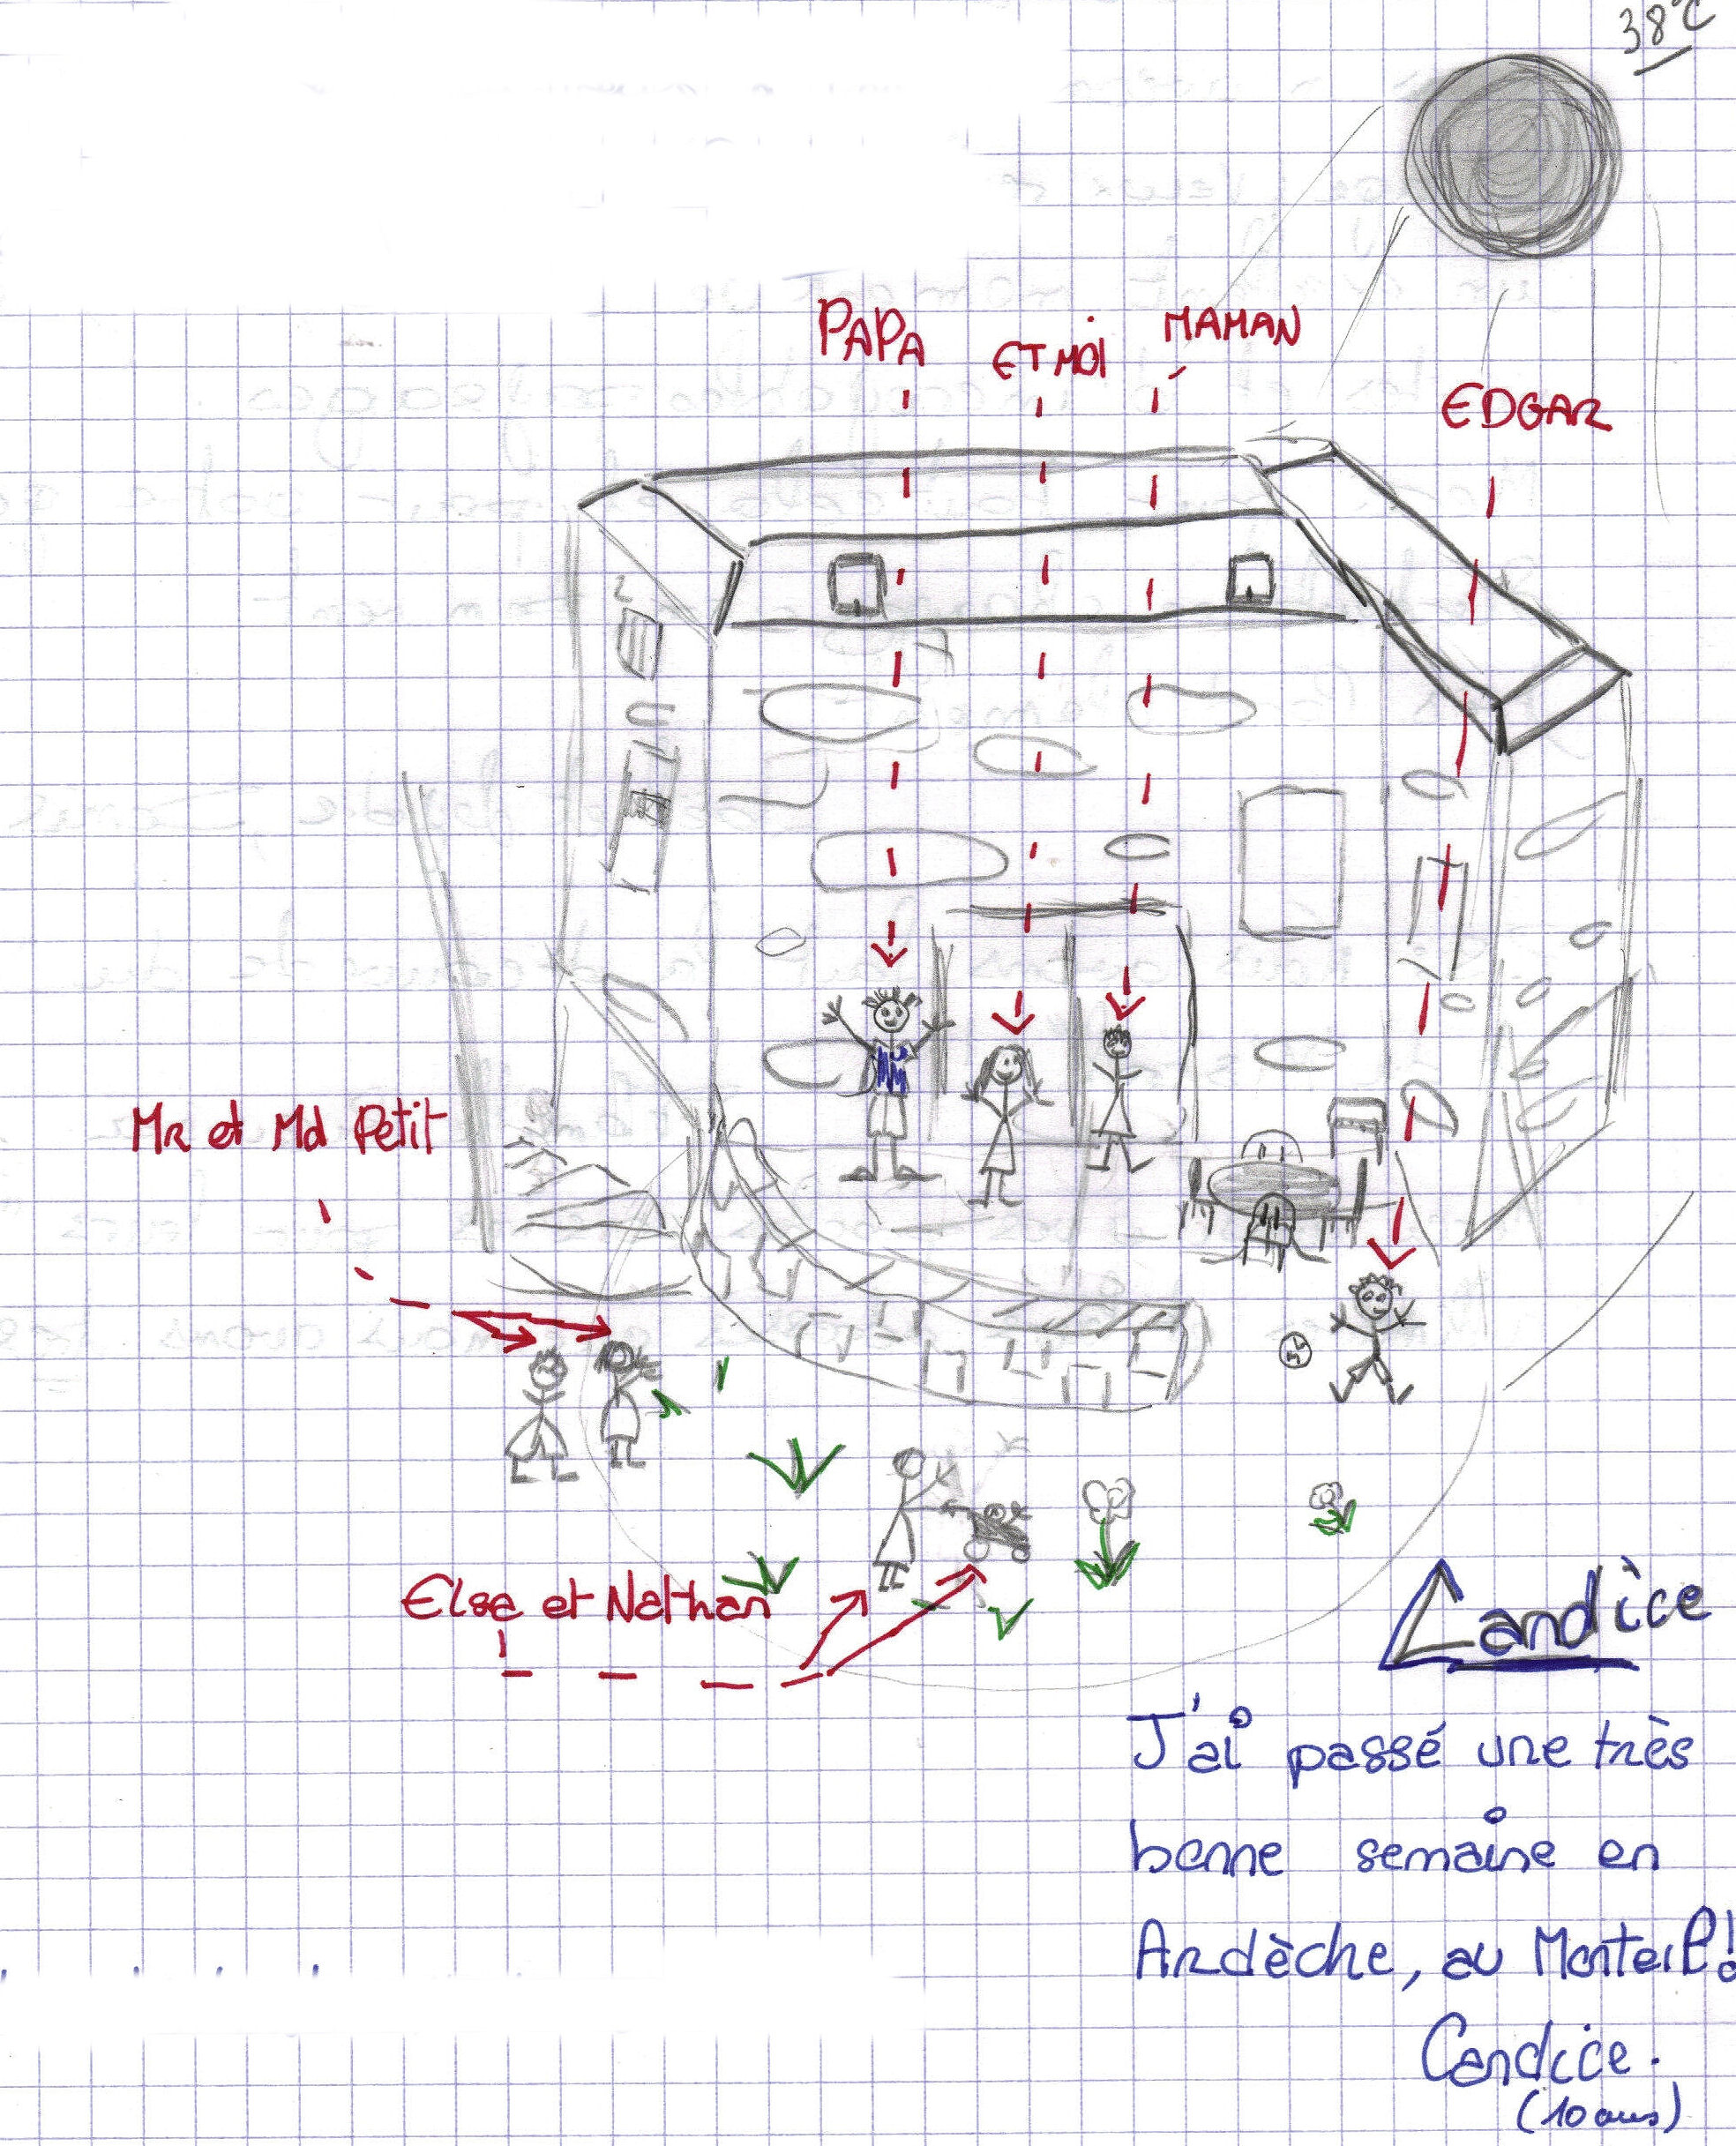 38°C
PAPA
ET MOI
MAMAN
EDGAR
Mr et Md Petit
Else et Nathan
Candice
J'ai passé une très
bonne semaine en
Ardèche, au Monteil!
Candice.
(10 ans)